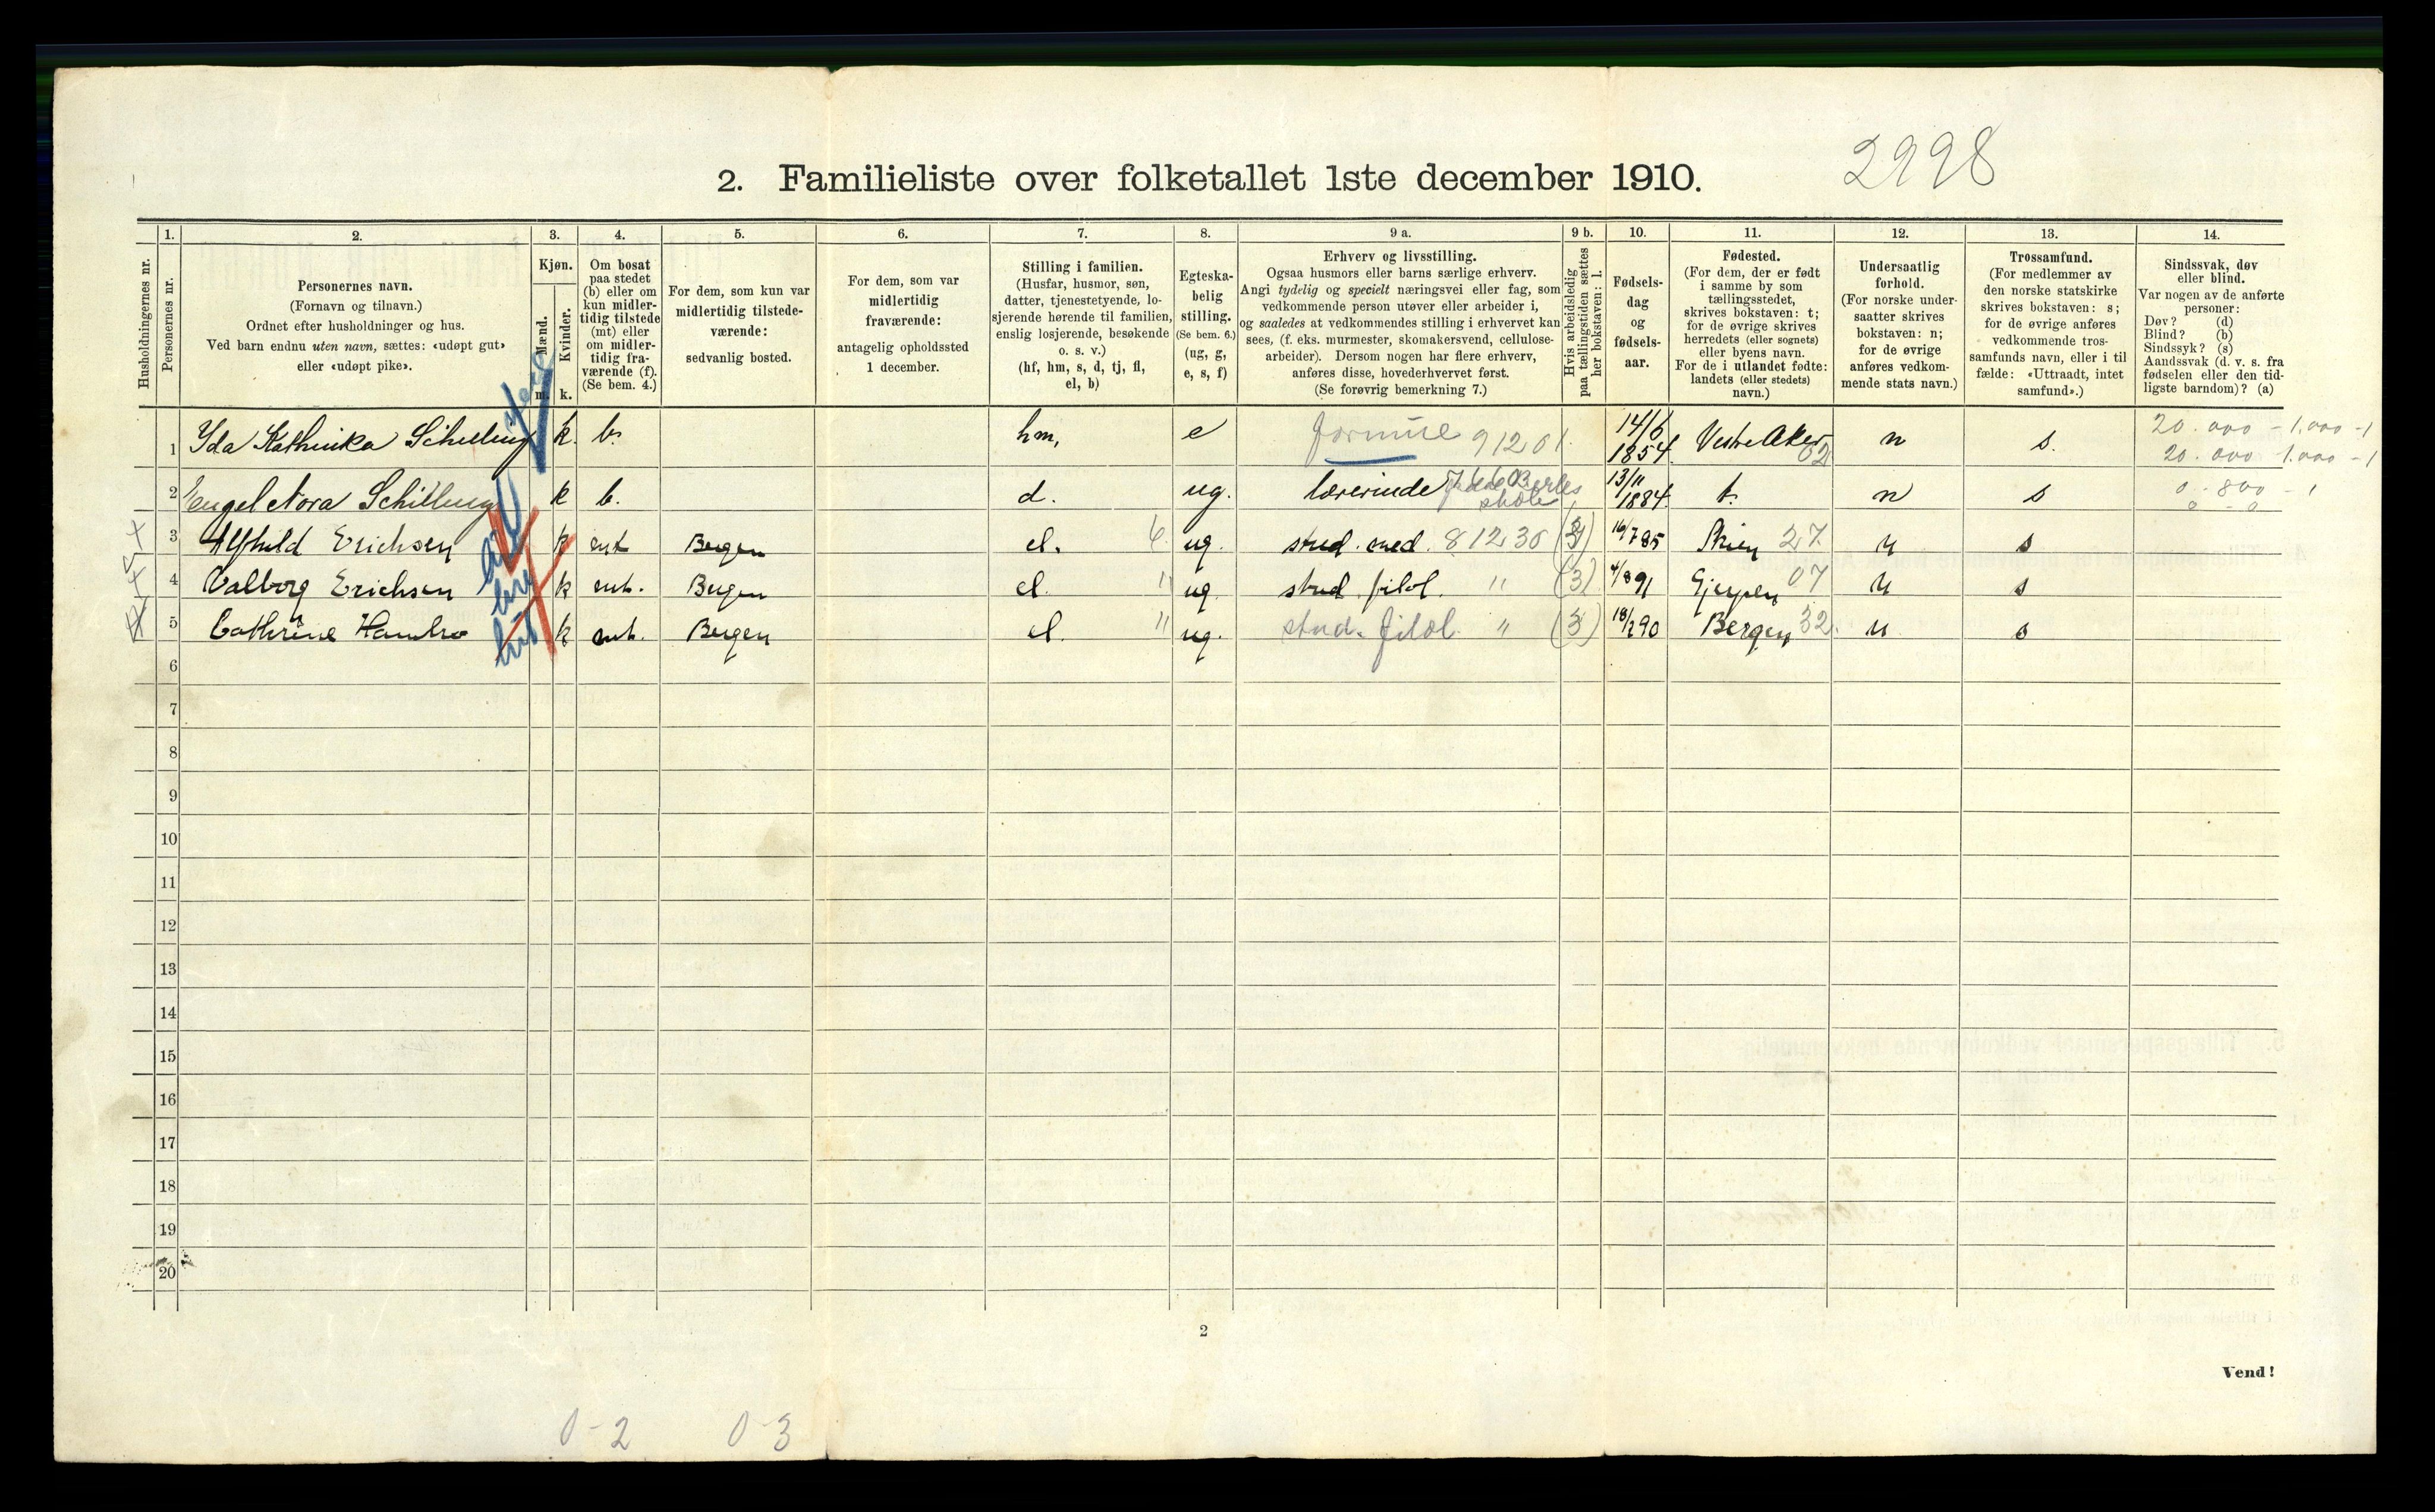 2998
2. Familieliste over folketallet 1ste december 1910.
Husholdningernes nr.
1. Personernes nr.
2. Personernes navn.
(Fornavn og tilnavn.)
Ordnet efter husholdninger og hus.
Ved barn endnu uten navn, sættes: «udøpt gut»
eller «udøpt pike».
3. Kjøn.
Mænd. m.
Kvinder. k.
4. Om bosat
paa stedet
(b) eller om
kun midler-
tidig tilstede
(mt) eller
om midler-
tidig fra-
værende (f).
(Se bem. 4.)
5. For dem, som kun var
midlertidig tilstede-
værende:
sedvanlig bosted.
6. For dem, som var
midlertidig
fraværende:
antagelig opholdssted
1 december.
7. Stilling i familien.
(Husfar, husmor, søn,
datter, tjenestetyende, lo-
sjerende hørende til familien,
enslig losjerende, besøkende
o. s. v.)
(hf, hm, s, d, tj, fl,
el, b)
8. Egteska-
belig
stilling.
(Se bem. 6.)
(ug, g,
e, s, f)
9 a. Erhverv og livsstilling.
Ogsaa husmors eller barns særlige erhverv.
Angi tydelig og specielt næringsvei eller fag, som
vedkommende person utøver eller arbeider i,
og saaledes at vedkommendes stilling i erhvervet kan
sees, (f. eks. murmester, skomakersvend, cellulose-
arbeider). Dersom nogen har flere erhverv,
anføres disse, hovederhvervet først.
(Se forøvrig bemerkning 7.)
9 b. Hvis arbeidsledig
paa tællingstiden sættes
her bokstaven: l.
10. Fødsels-
dag
og
fødsels-
aar.
11. Fødested.
(For dem, der er født
i samme by som
tællingsstedet,
skrives bokstaven: t;
for de øvrige skrives
herredets (eller sognets)
eller byens navn.
For de i utlandet fødte:
landets (eller stedets)
navn.)
12. Undersaatlig
forhold.
(For norske under-
saatter skrives
bokstaven: n;
for de øvrige
anføres vedkom-
mende stats navn.)
13. Trossamfund.
(For medlemmer av
den norske statskirke
skrives bokstaven: s;
for de øvrige anføres
vedkommende tros-
samfunds navn, eller i til
fælde: «Uttraadt, intet
samfund».)
14. Sindssvak, døv
eller blind.
Var nogen av de anførte
personer:
Døv? (d)
Blind? (b)
Sindssyk? (s)
Aandssvak (d. v. s. fra
fødselen eller den tid-
ligste barndom)? (a)
1 Ida Kathinka Schilling k. b. hm, e formue 91201. 14/6 1854 Vestre Aker 02 n s. 20.000 - 1.000 - 1
20.000 - 1.000 - 1
2 Engel Nora Schilling k b. d. ug. lærerinde Berles skole 13/11 1884 t. n s 0 - 800 - 1
0 - 0
3 Alfhild Erichsen k mt Bergen el. 6 ug. stud. med. 81230 (3) 16/7 85 Skien 27 n s
4 Valborg Erichsen k mt. Bergen el. " ug. stud filol. " (3) 4/8 91 Gjerpen 07 n s
5 Cathrine Hambro k mt. Bergen el. " ug. stud. filol. " (3) 18/2 90 Bergen 32. n s
6
7
8
9
10
11
12
13
14
15
16
17
18
19
20
2
Vend!
0-2 0-3